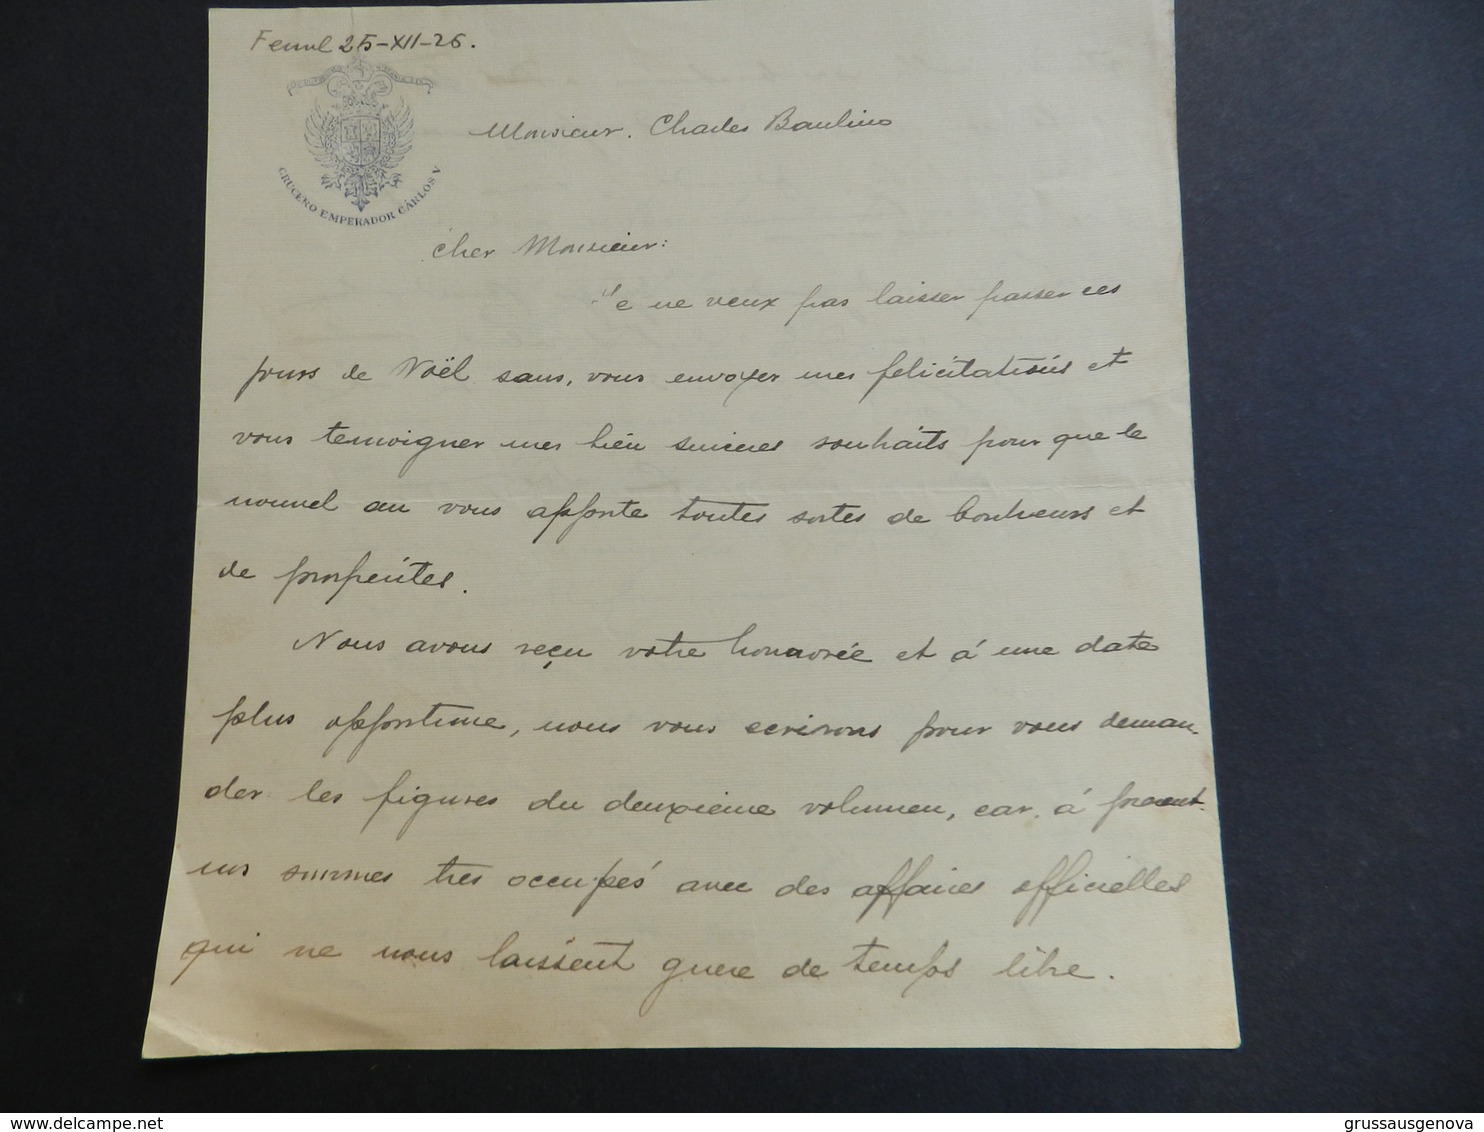 Ferrol 25-XII-26.
CRUCERO EMPERADOR CÁRLOS V
Monsieur. Charles Baulino
Cher Monsieur:
Je ne veux pas laisser passer ces
jours de Noël sans, vous envoyer mes felicitatións et
vous temoigner mes bién sinceres souhaits pour que le
nouvel an vous apporte toutes sortes de bonheurs et
de prosperités.
Nous avons reçu votre honorée et á une date
plus opportune, nous vous ecrirons pour vous deman-
der les figures du deuxieme volumen, car, á present
nus sommes tres occupés avec des affaires officielles
qui ne nous laissent guere de temps libre.
grussausgenova
www.delcampe.net